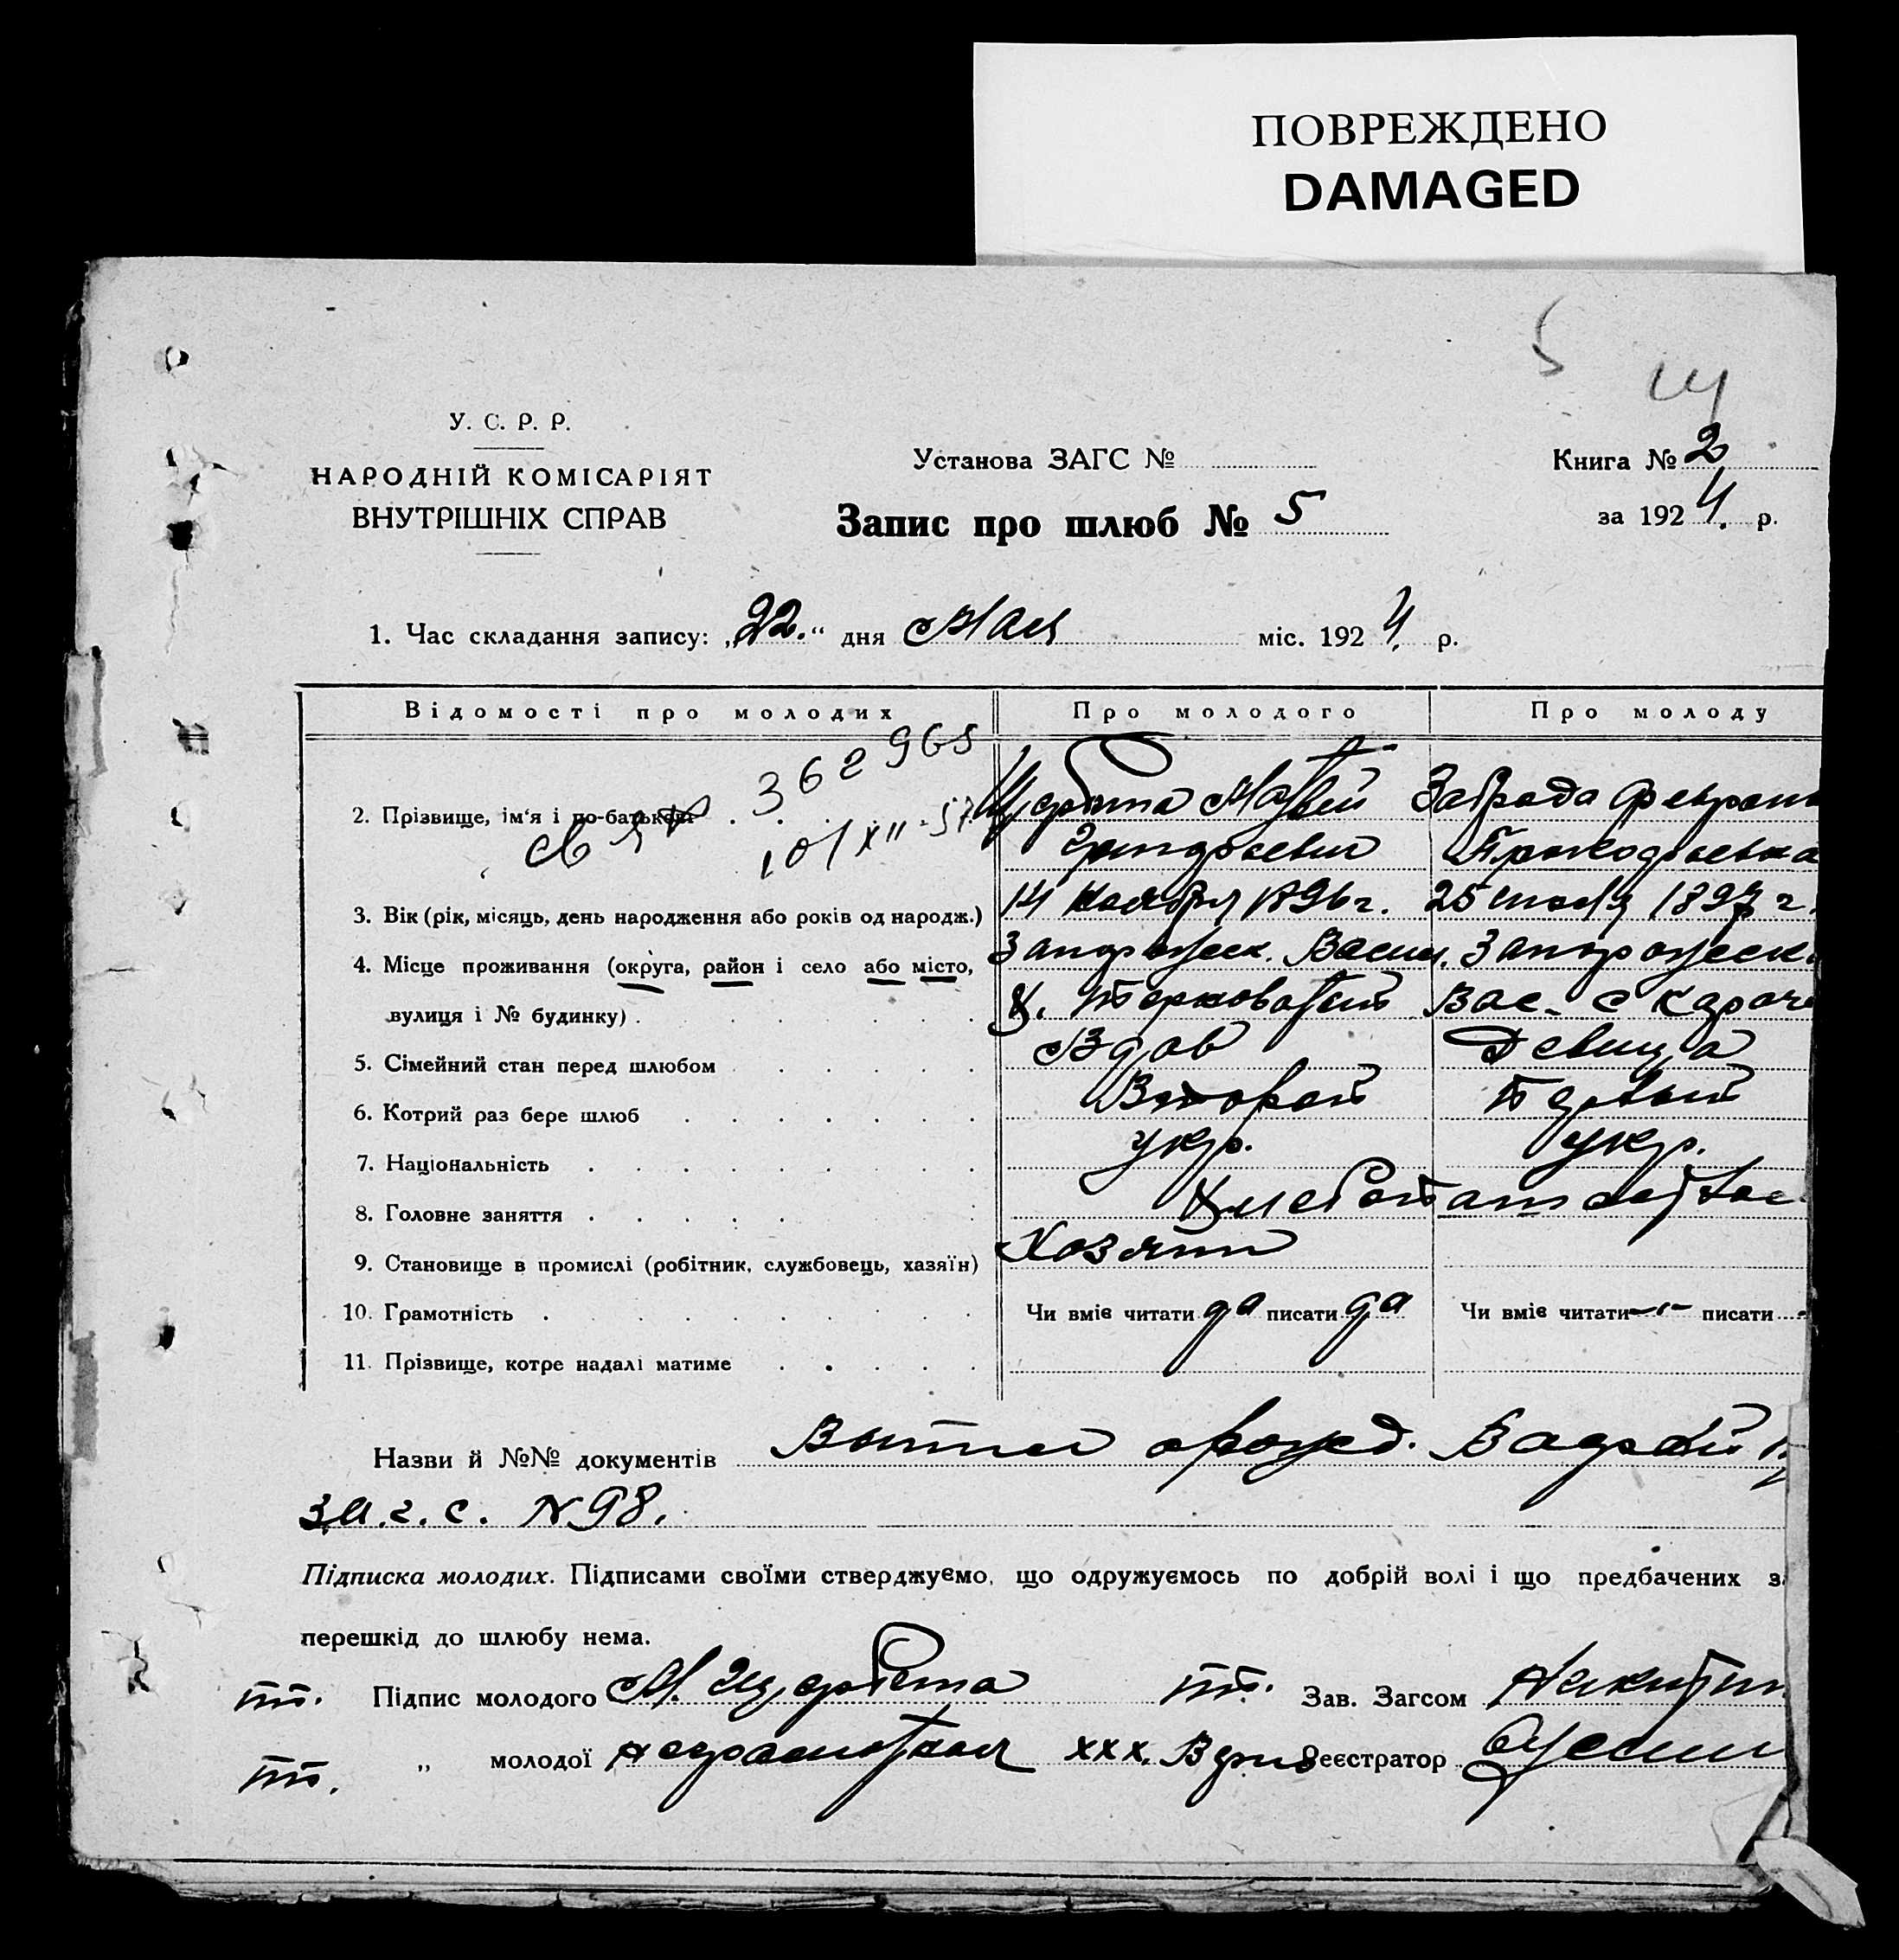 ПОВРЕЖДЕНО
DAMAGED
5
14
У. С. Р. Р.
НАРОДНІЙ КОМІСАРІЯТ
ВНУТРІШНІХ СПРАВ
Установа ЗАГС №
Запис про шлюб № 5
Книга № 2
за 1924. р.
1. Час складання запису: „22.“ дня Мая міс. 1924. р.
Відомості про молодих
Про молодого
Про молоду
362965
2. Прізвище, ім'я і по-батькові
Щербина Матвей
Заброда Феврон
св
10/XII-57
Григорьевич
Прокофьевна
3. Вік (рік, місяць, день народження або років од народж.)
14 ноября 1896 г.
25 июня 1897 г.
4. Місце проживання (округа, район і село або місто,
Запорожск. Васил.
Запорожск.
вулиця і № будинку)
х. Терноватый
Вас. с
5. Сімейний стан перед шлюбом
Вдов
Девица
6. Котрий раз бере шлюб
Второй
Первый
7. Національність
укр.
укр.
8. Головне заняття
Хлебопашество
9. Становище в промислі (робітник, службовець, хазяїн)
Хозяин
10. Грамотність
Чи вміє читати да писати да
Чи вміє читати -"- писати
11. Прізвище, котре надалі матиме
Назви й №№ документів
о рожд.
З.а.г.с. N 98.
Підписка молодих. Підписами своїми стверджуємо, що одружуємось по добрій волі і що предбачених з
перешкід до шлюбу нема.
Підпис молодого М. Щербина
Зав. Загсом Никитин
„ молодої Неграмотная ххх.
Реєстратор